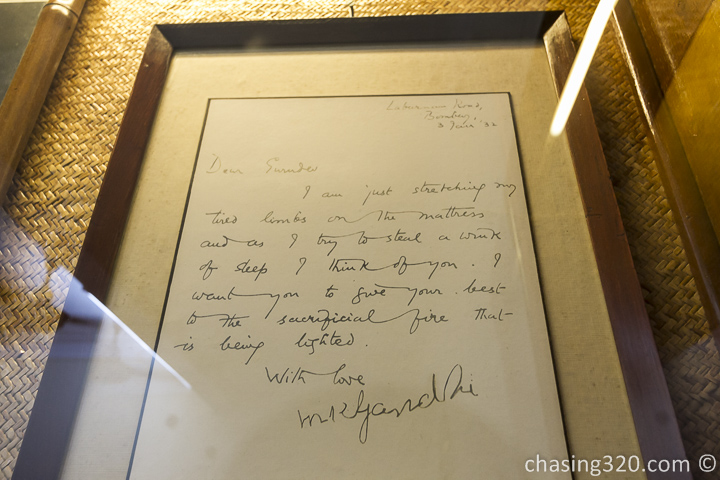 Laburnum Road,
Bombay,
3 Jan '32
Dear Gurudev
I am just stretching my
tired limbs on the mattress
and as I try to steal a wink
of sleep I think of you. I
want you to give your best
to the sacrificial fire that
is being lighted.
With love
MKGandhi
chasing320.com ©